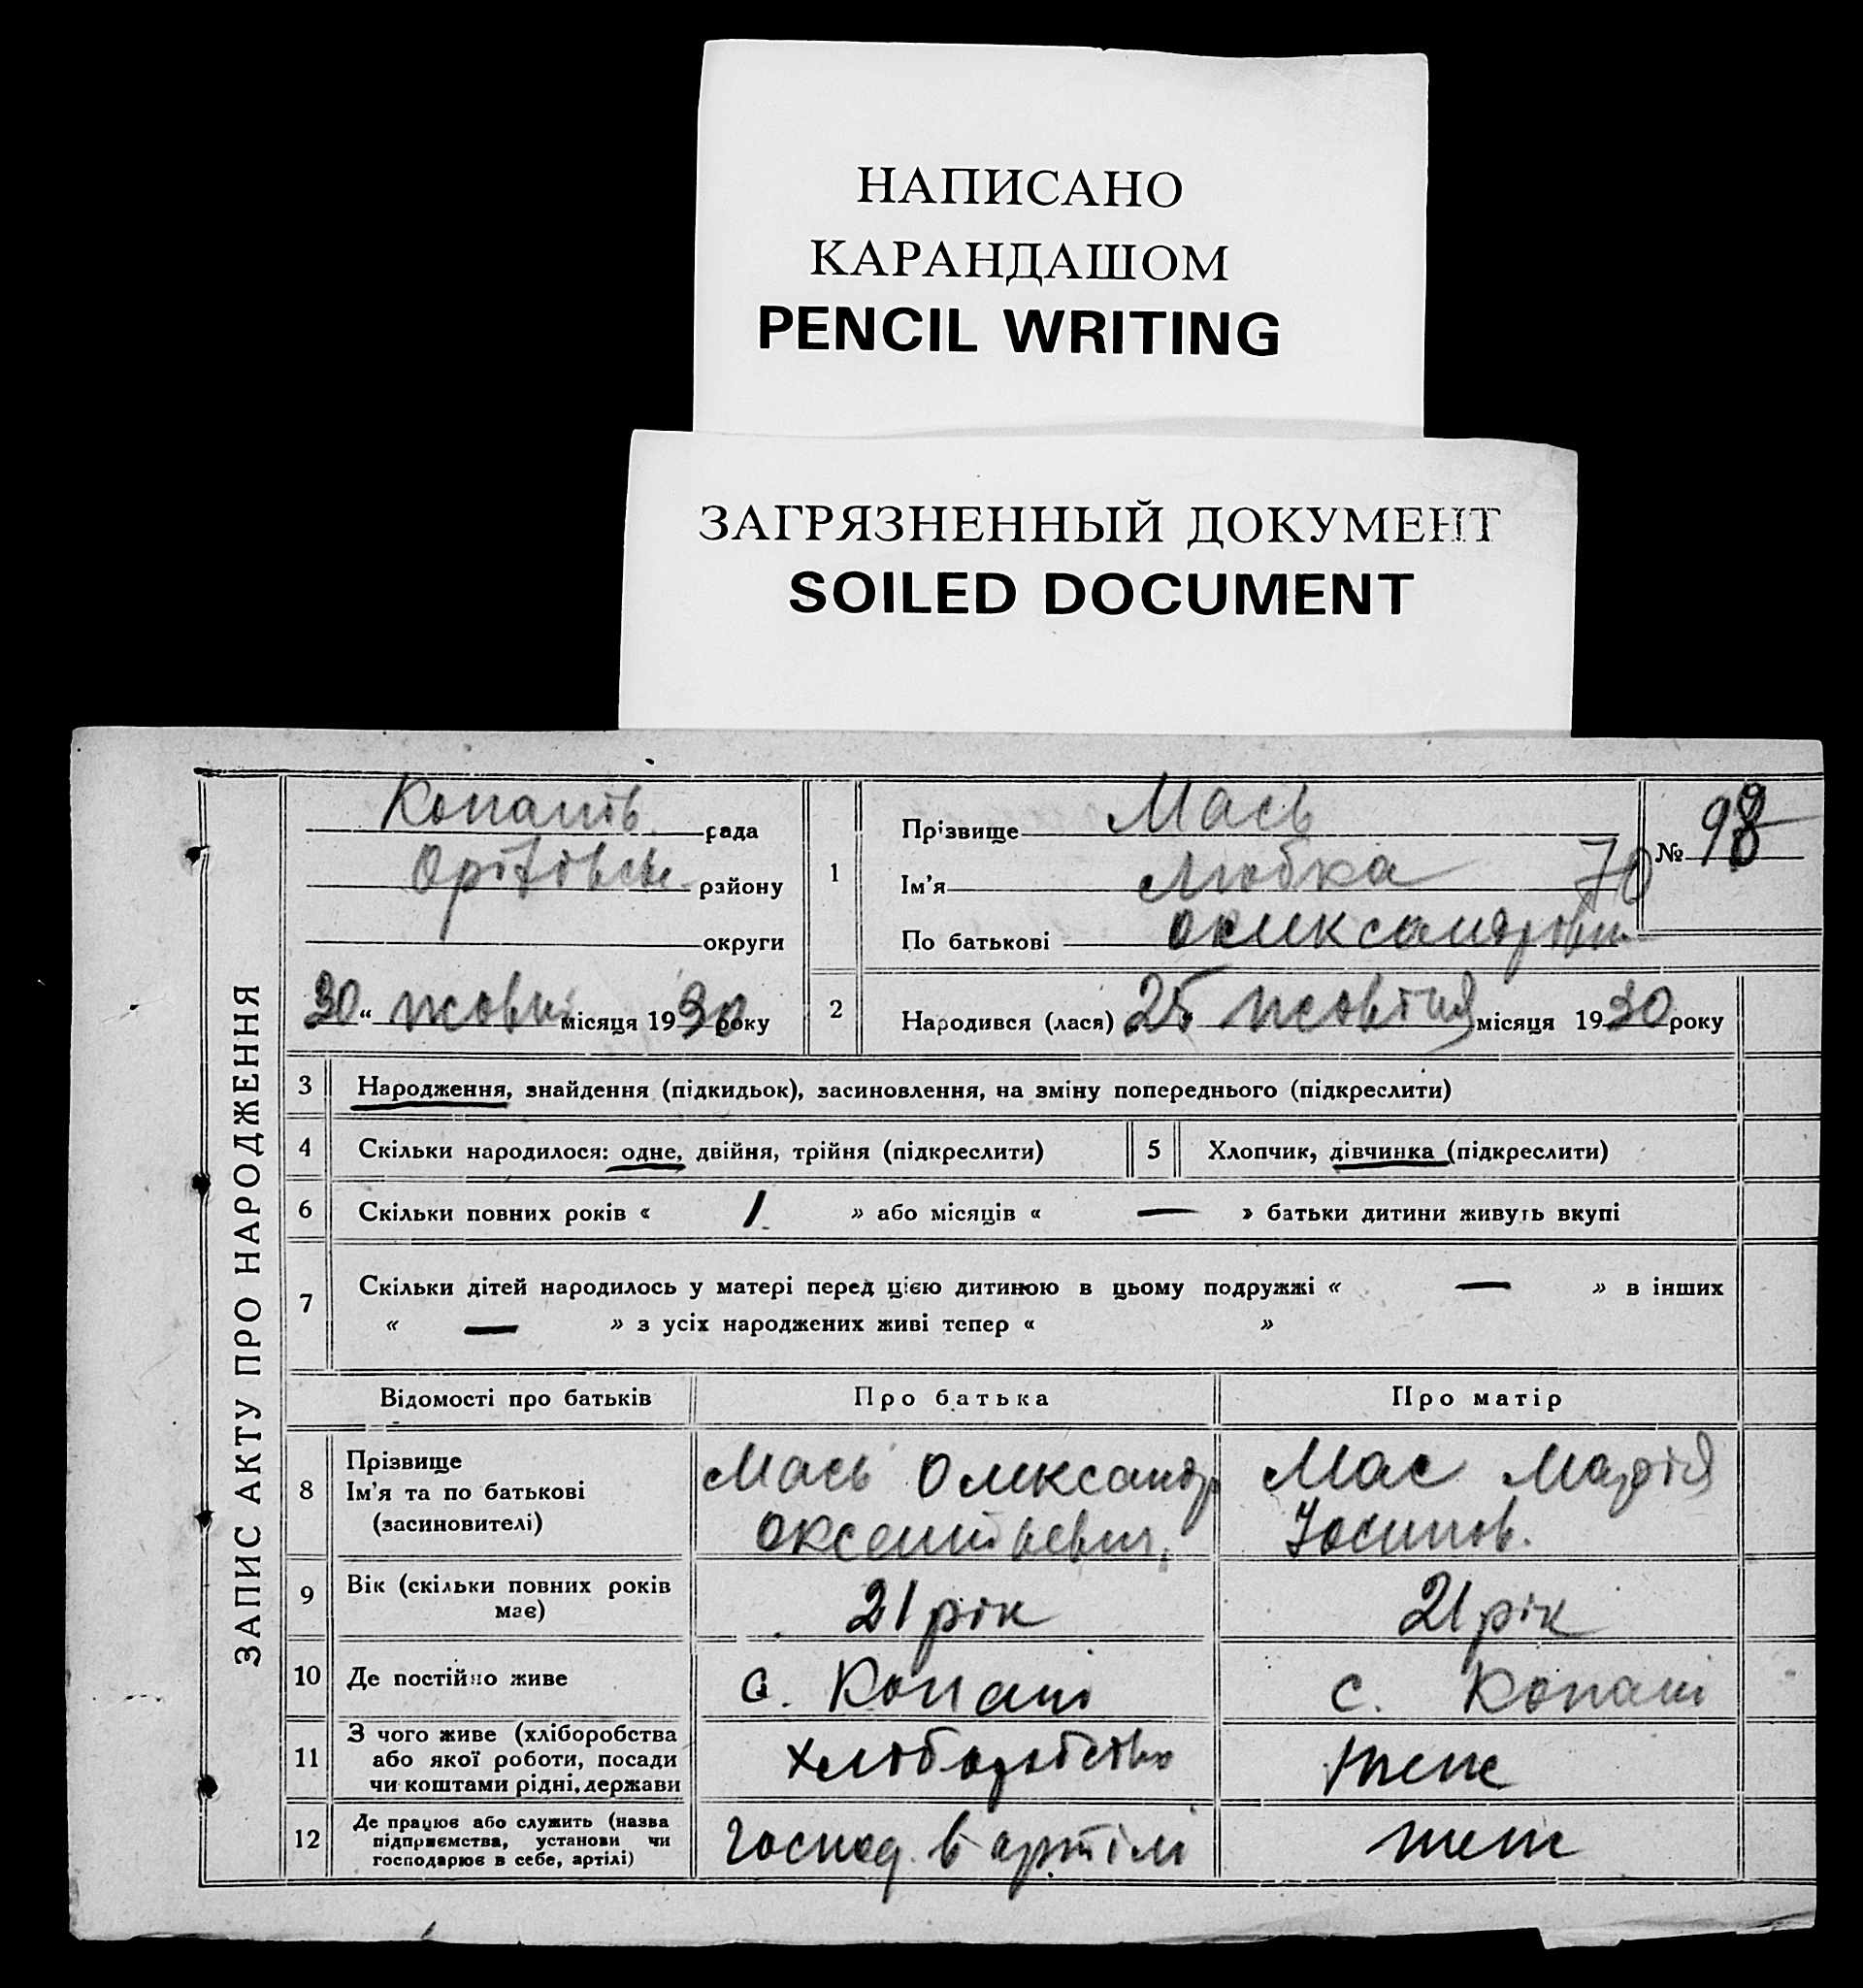 НАПИСАНО
КАРАНДАШОМ
PENCIL WRITING
ЗАГРЯЗНЕННЫЙ ДОКУМЕНТ
SOILED DOCUMENT
ЗАПИС АКТУ ПРО НАРОДЖЕННЯ
рада
району
округи
30 “ жовтн місяця 1930 року
1
Прізвище Мась
Ім’я Любка
70
По батькові
№ 98
2
Народився (лася) 25 жовтня місяця 1930 року
3 Народження, знайдення (підкидьок), засиновлення, на зміну попереднього (підкреслити)
4 Скільки народилося: одне, двійня, трійня (підкреслити)
5 Хлопчик, дівчинка (підкреслити)
6 Скільки повних років « 1 » або місяців « — » батьки дитини живуть вкупі
7 Скільки дітей народилось у матері перед цією дитиною в цьому подружжі « — » в інших
« — » з усіх народжених живі тепер « »
Відомості про батьків Про батька Про матір
8 Прізвище
Ім’я та по батькові
(засиновителі)
Мась Олександр
Мас Марія
Йосипов.
9 Вік (скільки повних років
має)
21 рік
21 рік
10 Де постійно живе
с. Копані
с. Копані
11 З чого живе (хліборобства
або якої роботи, посади
чи коштами рідні, держави
хліборобство
теж
12 Де працює або служить (назва
підприємства, установи чи
господарює в себе, артілі)
Господ. в артілі
теж